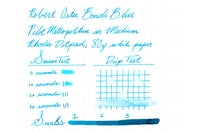 Robert Oster Bondi Blue
Pilot Metropolitan in Medium
Rhodia Dotpad, 80g white paper
Smear Test Drip Test
5 seconds
10 seconds
20 seconds
30 seconds
Swabs 1 2 3